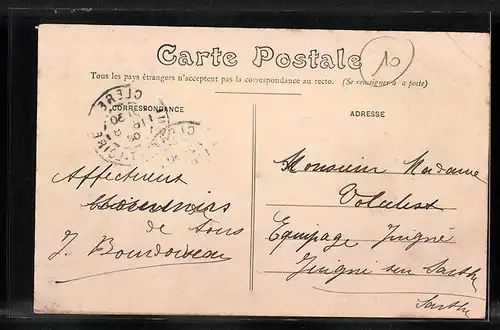 Carte Postale
10
Tous les pays étrangers n'acceptent pas la correspondance au recto. (Se renseigner à la poste)
CORRESPONDANCE
ADRESSE
CLERE
LOIRE
Affectueux
Souvenirs
de tous
J. Bourdoiseau
Monsieur Madame
Equipage Juigné
Juigné sur Sarthe
Sarthe